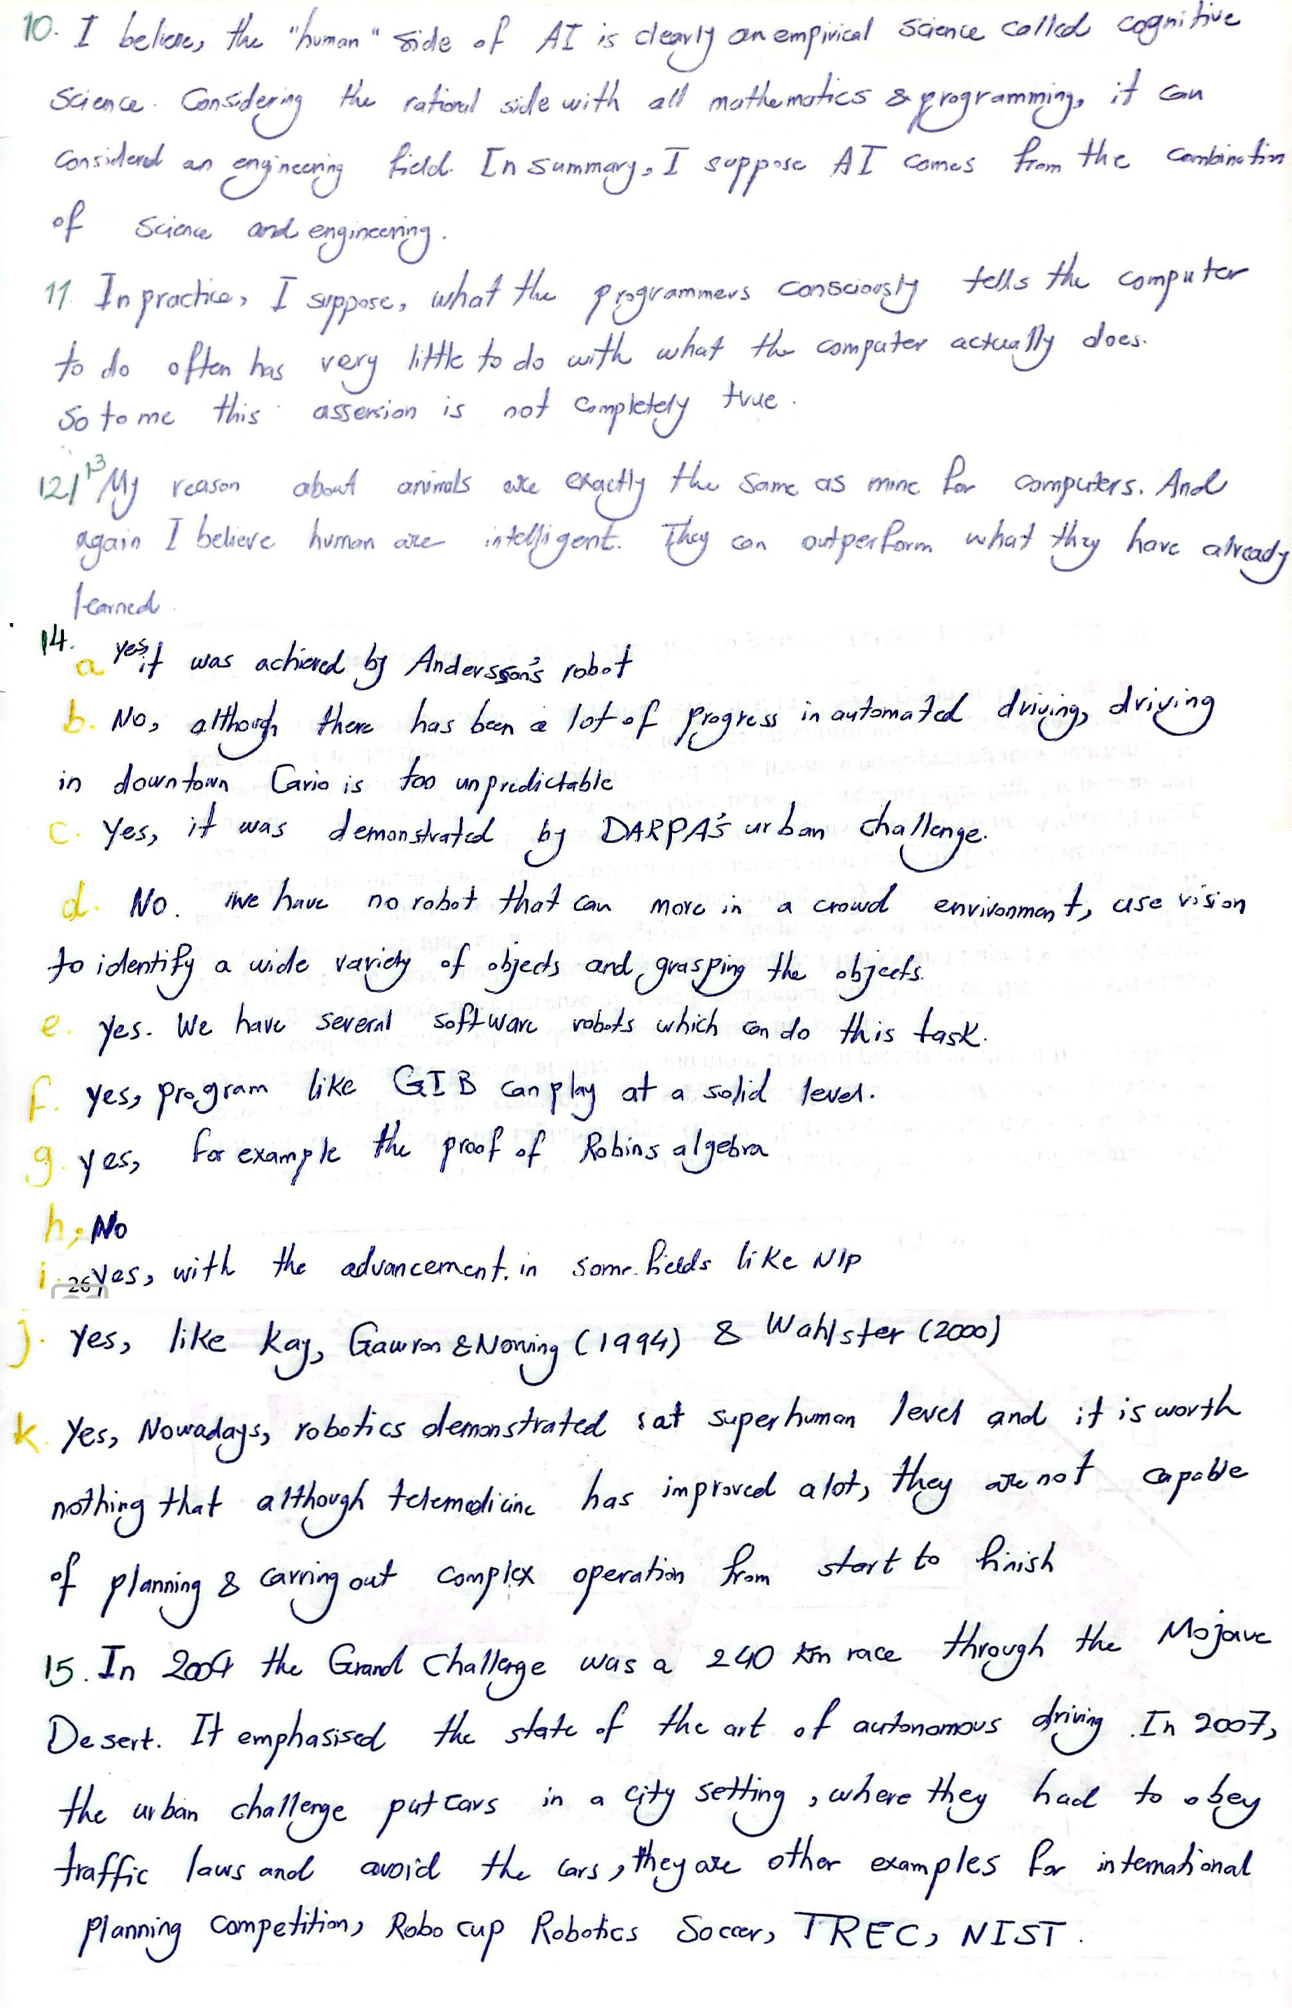 10. I believe, the "human" side of AI is clearly an empirical science called cognitive
science. Considering the rational side with all mathematics & programming, it can
considered an engineering field. In summary, I suppose AI comes from the combination
of science and engineering.
11. In practice, I suppose, what the programmers consciously tells the computer
to do often has very little to do with what the computer actually does.
So to me this assersion is not completely true.
12/13 My reason about animals are exactly the same as mine for computers. And
again I believe human are intelligent. They can outperform what they have already
learned.
14.
a yes, it was achieved by Andersson's robot
b. No, although there has been a lot of progress in automated driving, driving
in downtown Cario is too unpredictable
c. Yes, it was demonstrated by DARPA's urban challenge.
d. No. we have no robot that can move in a crowd environment, use vision
to identify a wide variety of objects and grasping the objects.
e. yes. We have several software robots which can do this task.
f. yes, program like GIB can play at a solid level.
g. yes, for example the proof of Robins algebra
h, No
i. yes, with the advancement in some fields like NlP
26
j. yes, like kay, Gawron & Norving (1994) & Wahlster (2000)
k. Yes, Nowadays, robotics demonstrated at superhuman level and it is worth
nothing that although telemedicine has improved alot, they are not capable
of planning & carring out complex operation from start to finish
15. In 2004 the Grand Challenge was a 240 km race through the Mojave
Desert. It emphasised the state of the art of autonomous driving. In 2007,
the urban challenge put cars in a city setting, where they had to obey
traffic laws and avoid the cars, they are other examples for international
planning competition, Robo cup Robotics Soccer, TREC, NIST.